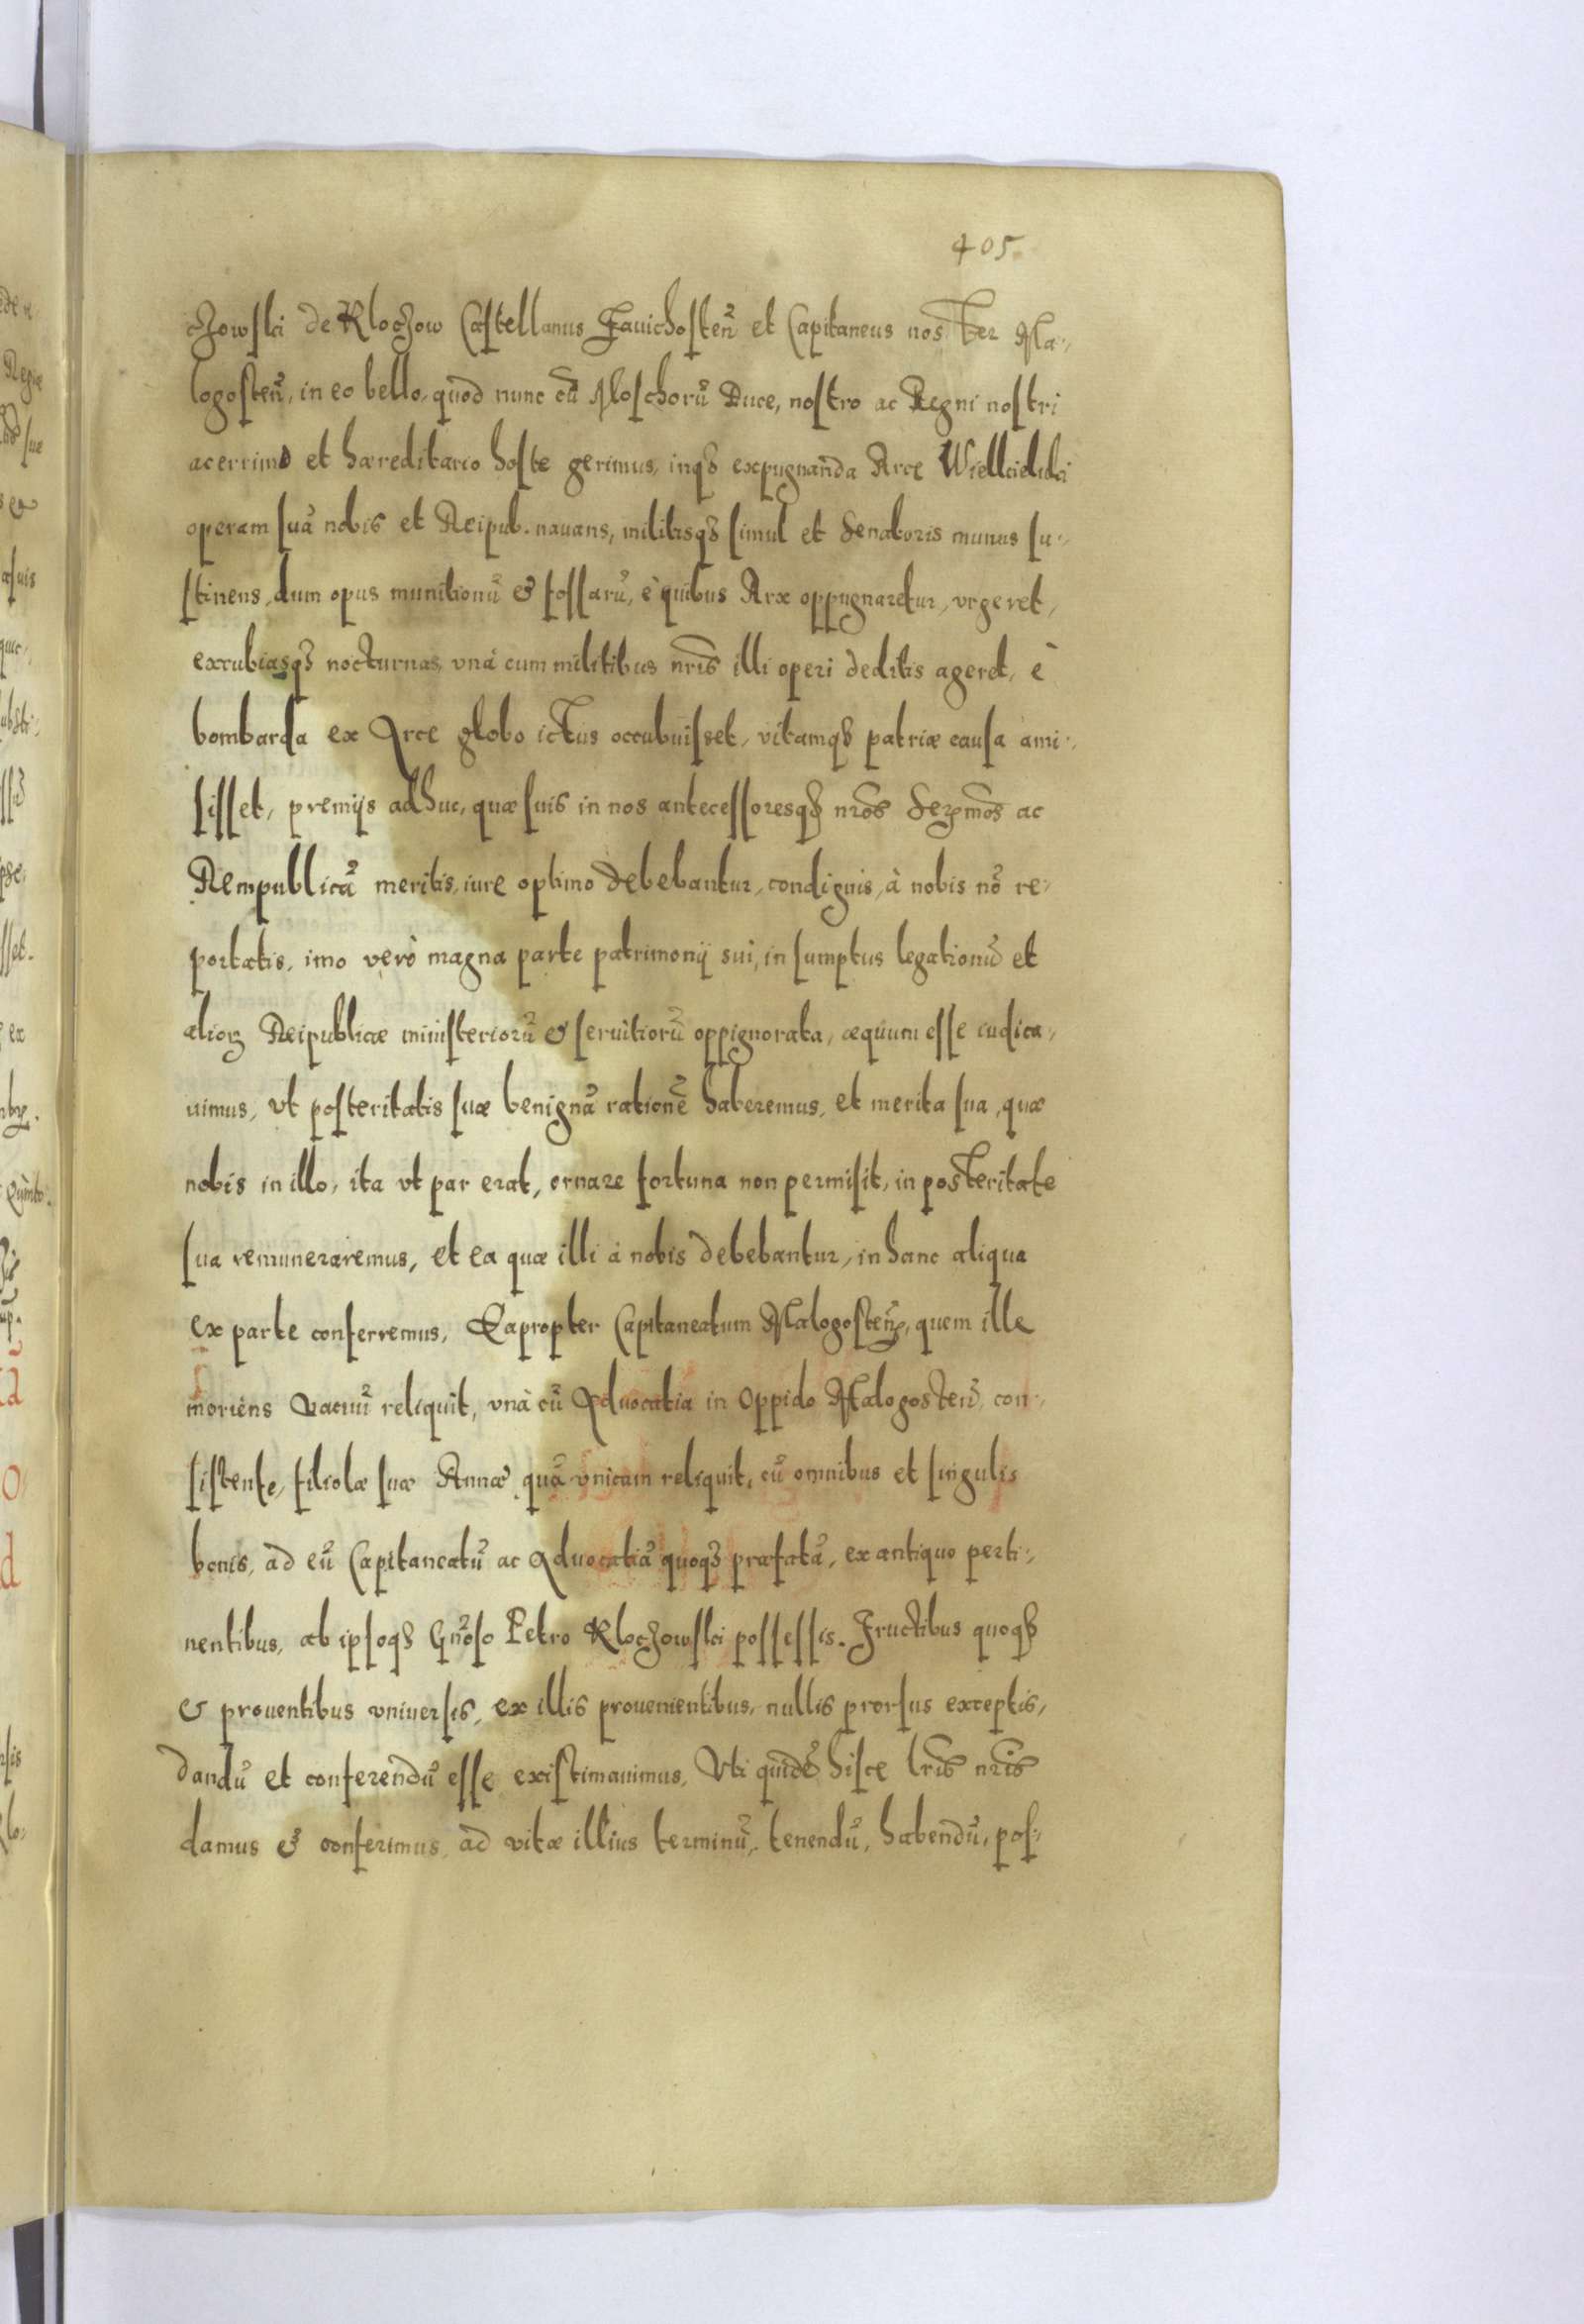 405.
chowski de Klochow Castellanus Zauichosteñ et Capitaneus noster Ma-
logosteñ, in eo bello, quod nunc cũ Moschorũ Duce, nostro ac Regni nostri
acerrimo et hæreditario hoste gerimus, inq3 expugnanda Arce Wielkieluki
operam suã nobis et Reipub. nauans, militisq3 simul et Senatoris munus su-
stinens, dum opus munitionũ & fossarũ, è quibus Arx oppugnaretur, vrgeret,
excubiasq3 nocturnas, vnà cum militibus nr̃is illi operi deditis ageret, è
bombarda ex Arce globo ictus occubuisset, vitamq3 patriæ causa ami-
sisset, premijs adhuc, quæ suis in nos antecessoresq3 nr̃os Serm̃os ac
Rempublicã meritis, iure optimo debebantur, condignis, à nobis nõ re-
portatis, imo verò magna parte patrimonij sui, in sumptus legationũ et
alioꝝ Reipublicæ ministeriorũ & seruitiorũ oppignorata, æquum esse iudica-
uimus, vt posteritatis suæ benignã rationẽ haberemus, et merita sua, quæ
nobis in illo, ita vt par erat, ornare fortuna non permisit, in posteritate
sua remuneraremus, et ea quæ illi à nobis debebantur, in hanc aliqua
ex parte conferremus, Eapropter Capitaneatum Malogosteñ, quem ille
moriens vacuũ reliquit, vnà cũ Aduocatia in Oppido Malogosteñ, con-
sistente, filiolæ suæ Annæ quã vnicam reliquit, cũ omnibus et singulis
bonis, ad eũ Capitaneatũ ac Aduocatiã quoq3 præfatã, ex antiquo perti-
nentibus, ab ipsoq3 Gñoso Petro Klochowski possessis. Fructibus quoq3
& prouentibus vniuersis, ex illis prouenientibus, nullis prorsus exceptis,
dandũ et conferendũ esse existimauimus, Vti quidẽ hisce lr̃is nr̃is
damus & conferimus, ad vitæ illius terminũ, tenendũ, habendũ, pos-